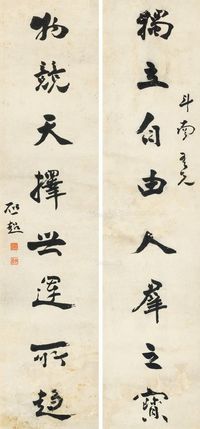 獨立自由人羣之寶
斗南吾兄
物競天擇世運所趨
啟超